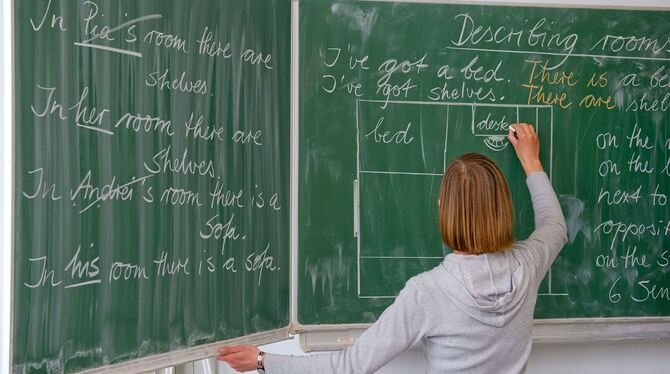 In Pia's room there are
shelves.
In her room there are
shelves.
In Andrei's room there is a
sofa.
In his room there is a sofa.
Describing room
I've got a bed. There is a be
I've got shelves. There are shel
bed
desk
on the
on the
next to
opposit
on the s
6 Sen